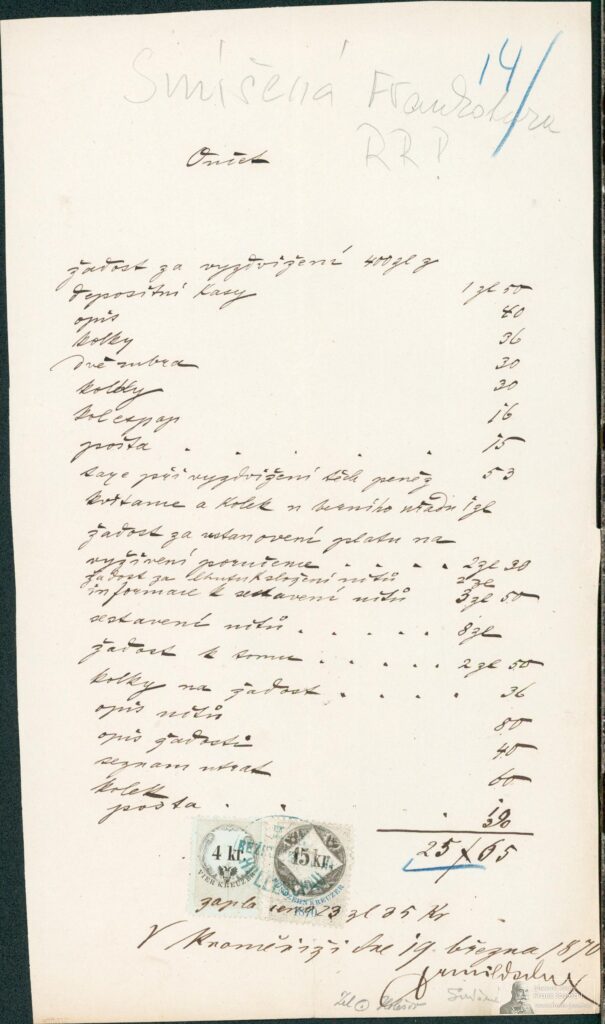 14/
Smíšená Frankatura
RR?
Oučet
žadost za vyzdvižení 400 zl z
deposìtní Kasy 1 zl 50
opis 40
kolky 36
dvě rubra 30
kolky 30
kolespap 16
pošta . . . . . . 15
taxe při vyzdvižení těch peněz 53
kvitance a Kolek u berního ouřadu 1 zl
žadost za ustanovení platu na
vyživení poručence . . . . 2 zl 30
žadost za složení účtů 2 zl
informace k sestavení účtů 3 zl 50
sestavení účtů . . . . . 8 zl
žadost k tomu . . . . . 2 zl 50
kolky na žadost . . . . 36
opis účtů 80
opis žadosti 40
seznam utrat 60
kolek
pošta . . .
25 x 65
4 kr.
VIER KREUZER
15 KR.
zaplaceno 23 zl 35 Kr
V Kroměřiži dne 19. března 1870